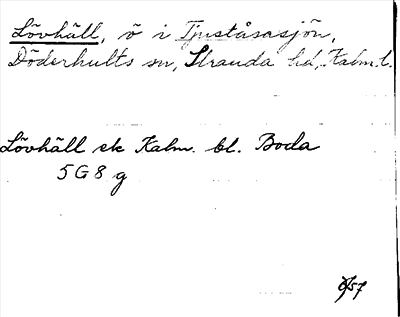 Lövhäll, ö i Tjuståsasjön,
Döderhults sn, Stranda hd, Kalm. l.
Lövhäll ek Kalm. bl. Boda
5 G 8 g
/57